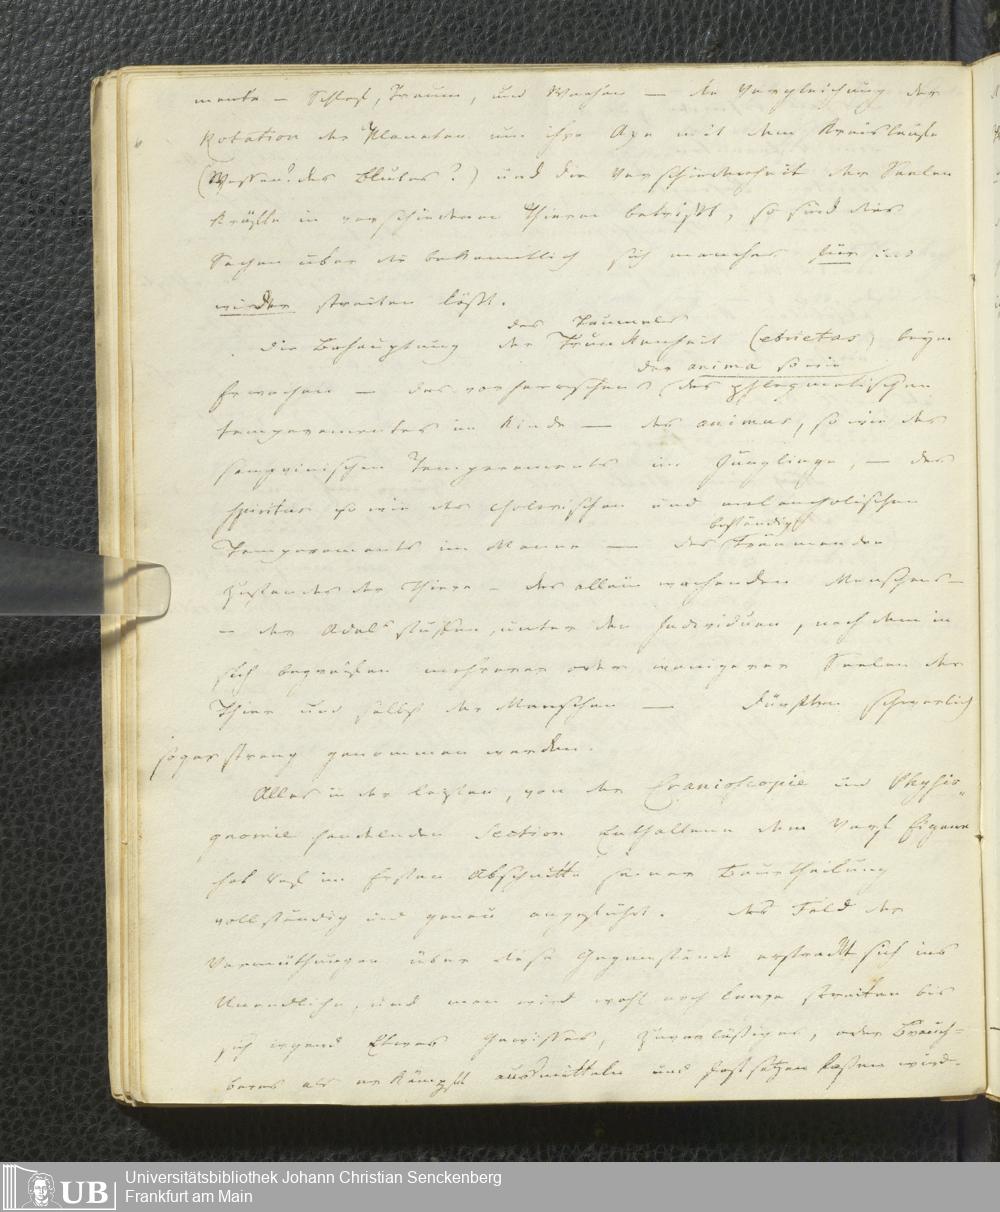 mente – Schlaf, Traum, und Wachen — die Vergleichung der
Rotation der Planeten um ihre Axe mit dem Kreislaufe
(Wessen? des Blutes?) und die Verschiedenheit der Seelen
Kräfte in verschiedenen Thieren betrifft, so sind dies
Sachen über die bekanntlich sich manches für und
wieder streiten läßt.
des Taumels
die Behauptung der Trunkenheit (ebrietas) beym
der anima so wie
Erwachen — des vorherrschens des phlegmatischen
Temperamentes im Kinde — des animus, so wie des
sanguinischen Temperaments im Jünglinge, — des
spiritus so wie des cholerischen und melancholischen
beständig
Temperaments im Manne — des Träumenden
Zustandes der Thiere – des allein wachenden Menschens –
– der Adels stuffen, unter den Individuen, nach dem in
sich begreifen mehrerer oder wenigerer Seelen der
Thiere und selbst der Menschen — dürften schwerlich
sogar streng genommen werden.
Alles in der letzten, von der Cranioscopie und Physio
gnomie handelnden Section Enthaltene dem Verf. Eigene
hat Ref. im Ersten Abschnitte seiner Beurtheilung
vollständig und genau angeführt. Das Feld der
Vermuthungen über diese Gegenstände erstreckt sich ins
Unendliche, und man wird wohl noch lange streiten bis
sich irgend Etwas Gewisses, Zuverlässiges, oder Brauch=
bares als erkämpft ausmitteln und festsetzen lassen wird.
Universitätsbibliothek Johann Christian Senckenberg
UB Frankfurt am Main